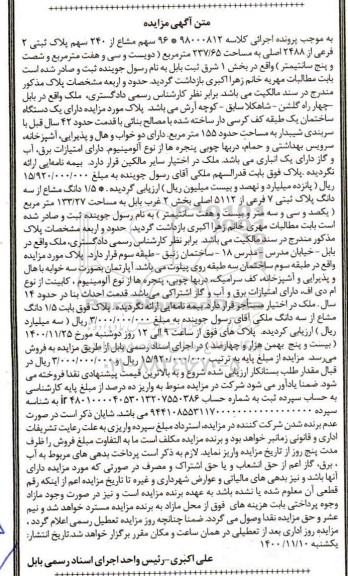 متن آگهی مزایده
به موجب پرونده اجرائی کلاسه ۹۸۰۰۰۸۱۲ * ۹۶ سهم مشاع از ۲۴۰ سهم پلاک ثبتی ۲
فرعی از ۲۴۸۸ اصلی به مساحت ۲۳۷/۶۵ مترمربع (دویست و سی و هفت مترمربع و شصت
و پنج سانتیمتر) واقع در بخش ۱ شرق ثبت بابل به نام رسول جوینده ثبت و صادر شده است
بابت مطالبات مهریه خانم زهرا اکبری بازداشت گردید. حدود و اربعه مشخصات پلاک مذکور
مندرج در سند مالکیت می باشد. برابر نظر کارشناس رسمی دادگستری، ملک واقع در بابل
-چهار راه گلشن -شاهکلا سابق - کوچه آرش می باشد. پلاک مورد مزایده دارای یک دستگاه
ساختمان یک طبقه کف کرسی دار ساخته شده با مصالح بنائی با قدمت حدود ۴۲ سال قبل با
سربندی شیبدار به مساحت حدود ۱۵۵ متر مربع. دارای دو خواب و هال و پذیرایی، آشپزخانه،
سرویس بهداشتی و حمام، دربها چوبی پنجره ها از نوع آلومینیوم. دارای امتیازات برق، آب
و گاز دارای یک انباری می باشد. ملک در اختیار سایر مالکین قرار دارد. بیمه نامه‌ایی ارائه
نگردیده .پلاک فوق بابت قدرالسهم ملکی آقای رسول جوینده به مبلغ ۱۵/۹۲۰/۰۰۰/۰۰۰
ریال (پانزده میلیارد و نهصد و بیست میلیون ریال) ارزیابی گردیده. * ۱/۵ دانگ مشاع از سه
دانگ پلاک ثبتی ۷ فرعی از ۵۱۱۲ اصلی بخش ۲ غرب بابل به مساحت ۱۳۳/۲۷ متر مربع
(یکصد و سی و سه متر مربع و بیست و هفت سانتیمتر) به نام رسول جوینده ثبت و صادر شده
است بابت مطالبات مهریه خانم زهرا اکبری بازداشت گردید. حدود و اربعه مشخصات پلاک
مذکور مندرج در سند مالکیت می باشد. برابر نظر کارشناس رسمی دادگستری، ملک واقع در
بابل - خیابان مدرس - مدرس ۱۸ - ساختمان زنبق - طبقه سوم قرار دارد. پلاک مورد مزایده
واقع در طبقه سوم ساختمان سه طبقه روی پیلوت می باشد. آپارتمان بصورت سه خوابه با هال
و پذیرایی و آشپزخانه، کف سرامیک، دربها چوبی، پنجره ها از نوع آلومینیوم ، کابینت از نوع
ام دی اف، دارای امتیازات برق و آب و گاز اشتراکی می باشد. قدمت احداث بنا در حدود ۱۴
سال .ملک در اختیار مستأجر قرار دارد. بیمه نامه ایی ارائه نگردیده. پلاک فوق بابت ۱/۵ دانگ
مشاع از سه دانگ ملکی آقای رسول جوینده به مبلغ ۳/۰۰۰/۰۰۰/۰۰۰ ریال (سه میلیارد
ریال) ارزیابی گردیده. پلاک های فوق از ساعت ۹ الی ۱۲ روز دوشنبه مورخ ۱۴۰۰/۱۱/۲۵
(بیست و پنج بهمن هزار و چهارصد) در اجرای اسناد رسمی بابل از طریق مزایده به فروش
می‌رسد. مزایده از مبلغ پایه به ترتیب ۱۵/۹۲۰/۰۰۰/۰۰۰ ریال و ۳/۰۰۰/۰۰۰/۰۰۰ ریال در
قبال مقدار طلب بستانکار ارزیابی شده شروع و به بالاترین قیمت پیشنهادی نقدا فروخته می
شود. ضمنا یادآور می شود شرکت در مزایده منوط به واریز ده درصد از مبلغ پایه کارشناسی
به حساب سپرده ثبت به شماره حساب ir ۴۸۰۱۰۰۰۰۴۰۵۳۰۱۳۲۰۷۵۵۰۳۸۶ به شناسه
سپرده ۹۴۴۱۰۸۵۵۳۱۱۷۰۰۰۰۰۰۰۰۰۰۰۰۰۰۰۰۰۰ می باشد. شایان ذکر است در صورت
عدم برنده شدن شرکت کننده در مزایده، استرداد مبلغ سپرده واریزی به علت رعایت تشریفات
اداری و قانونی زمانبر خواهد بود و برنده مزایده مکلف است ما به التفاوت مبلغ فروش را ظرف
مدت پنج روز از تاریخ مزایده واریز نماید. لازم به ذکر است پرداخت بدهی های مربوط به آب
، برق، گاز اعم از حق انشعاب و یا حق اشتراک و مصرف در صورتی که مورد مزایده دارای
آنها باشد و نیز بدهی های مالیاتی و عوارض شهرداری و غیره تا تاریخ مزایده اعم از اینکه رقم
قطعی آن معلوم شده یا نشده باشد به عهده برنده مزایده است و نیز در صورت وجود مازاد
وجوه پرداختی بابت هزینه های فوق از محل مازاد به برنده مزایده مسترد خواهد شد و نیم
عشر و حق مزایده نقدا وصول می گردد. ضمنا چنانچه روز مزایده تعطیل رسمی اعلام گردد ،
مزایده روز اداری بعد از تعطیلی در همان ساعت و مکان مقرر برگزار خواهد شد.تاریخ انتشار:
یکشنبه ۱۴۰۰/۱۱/۱۰
علی اکبری -رئیس واحد اجرای اسناد رسمی بابل